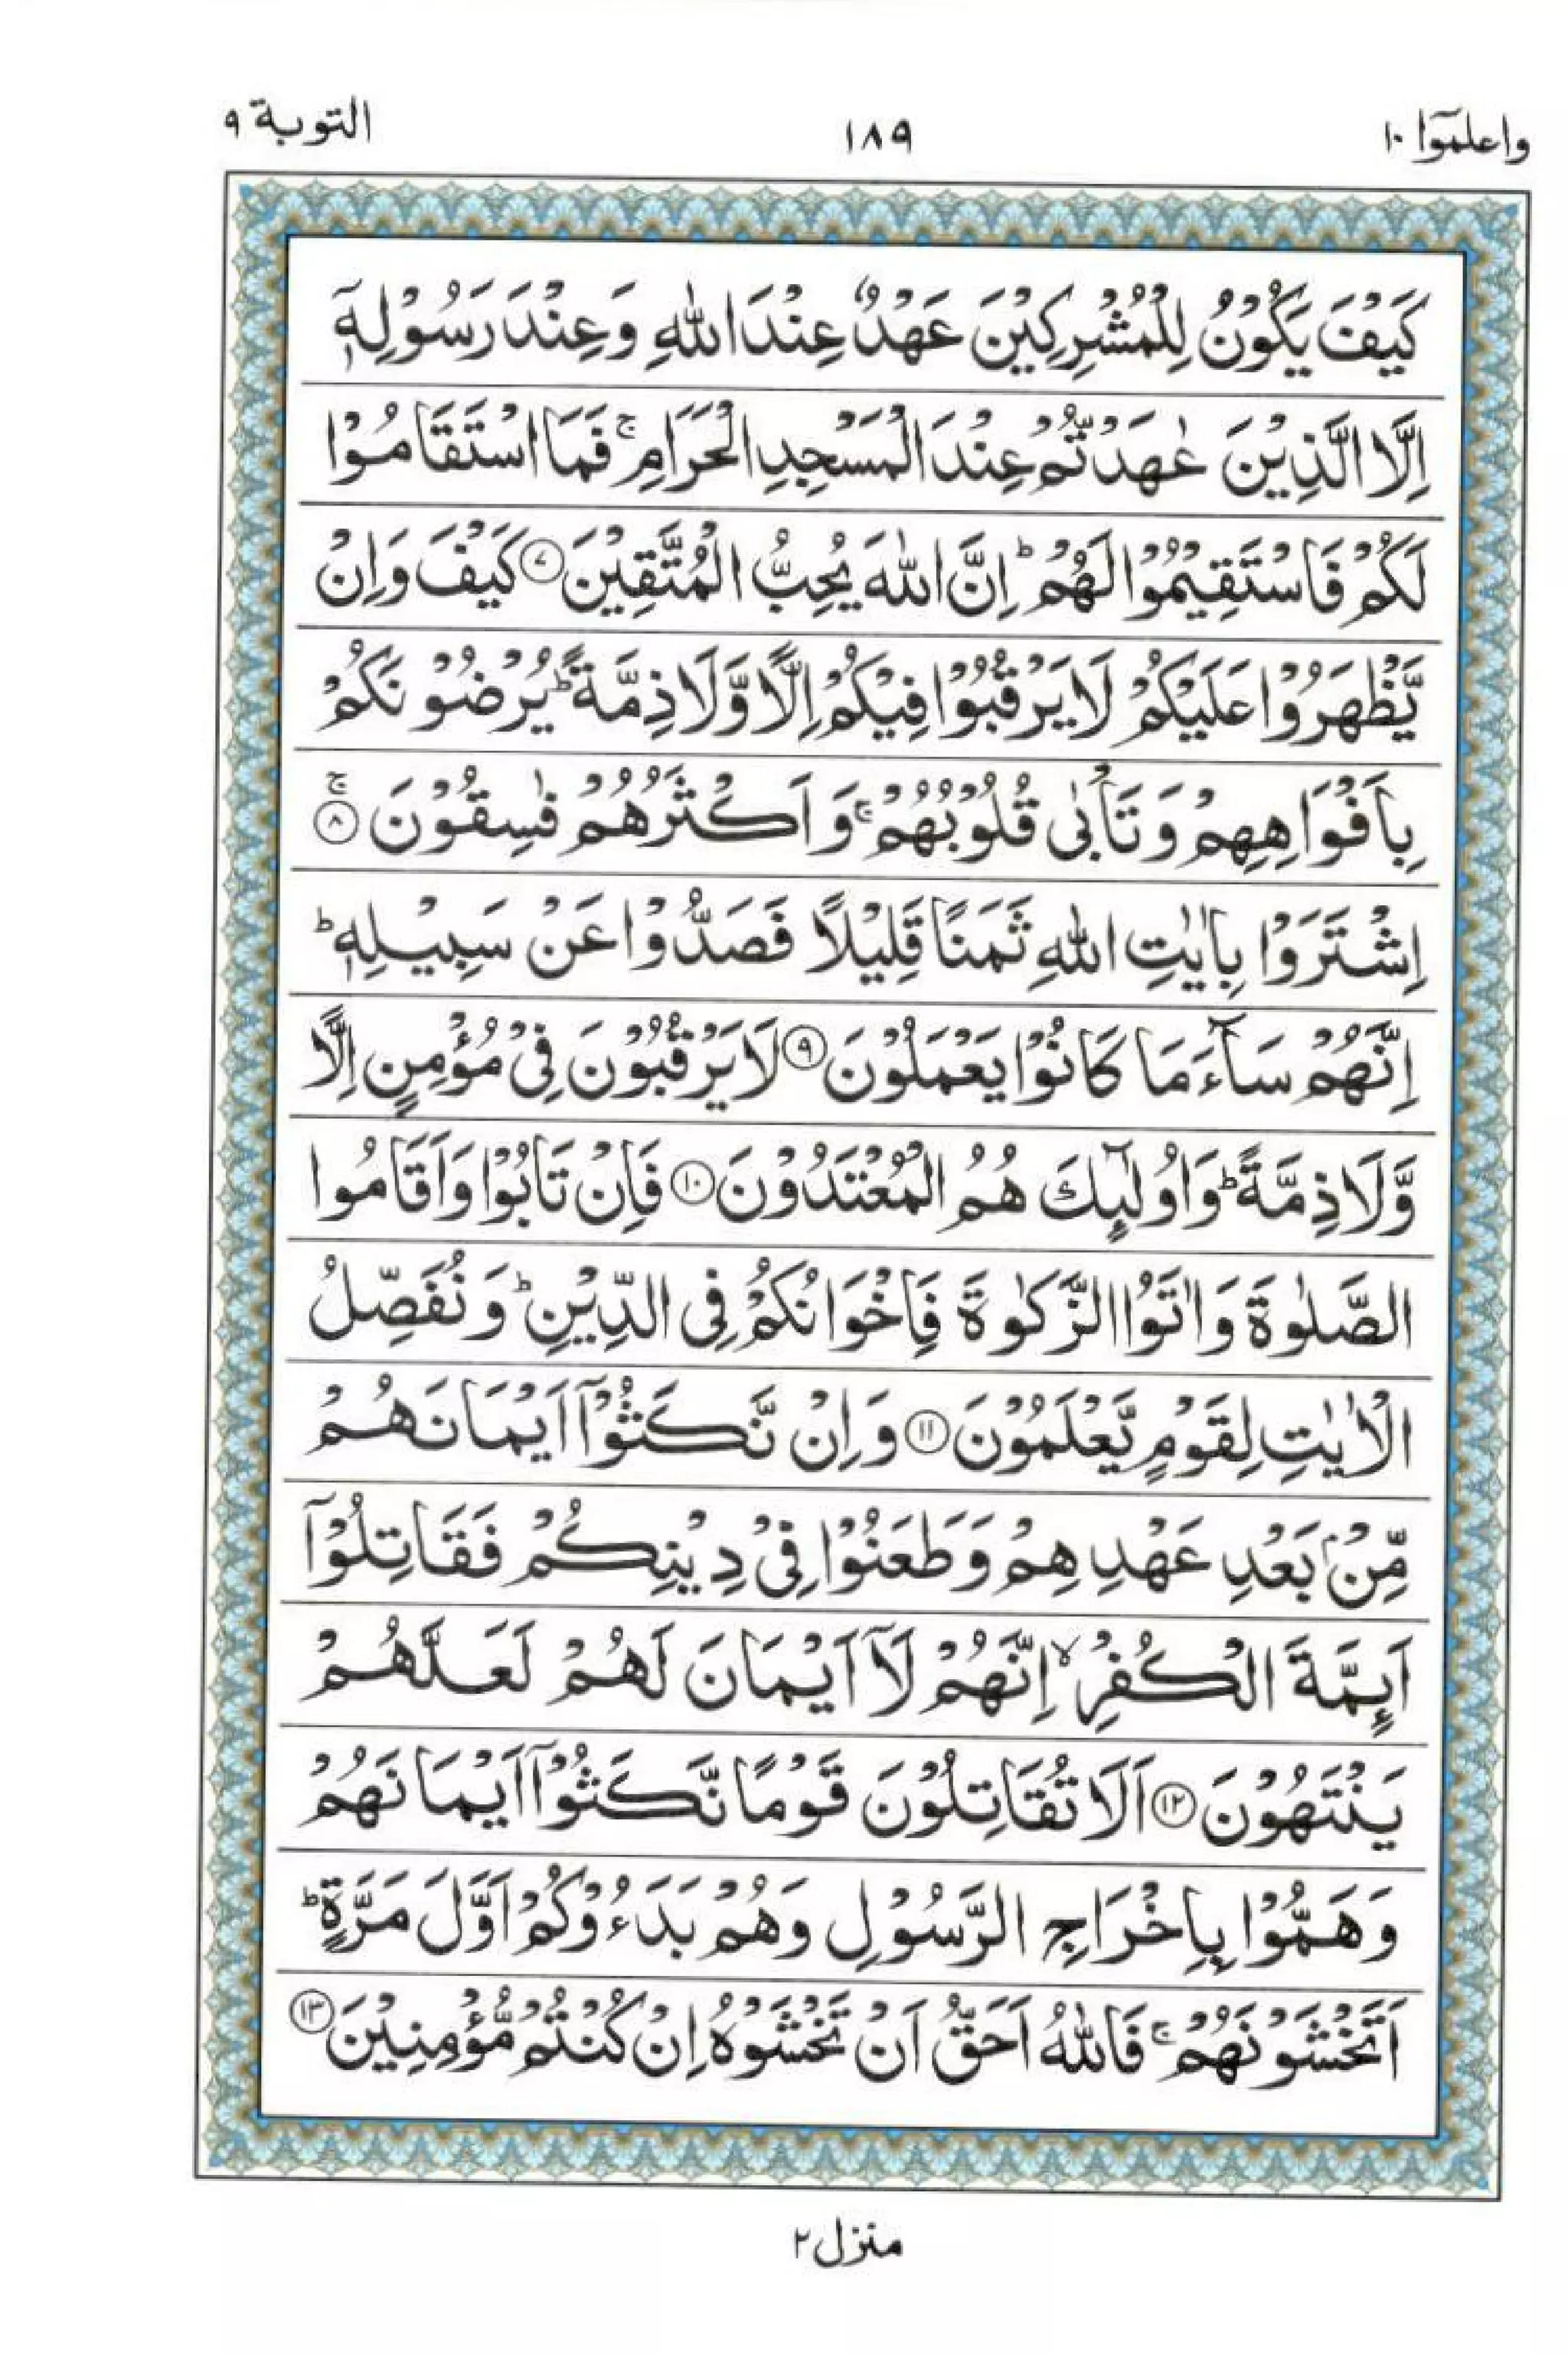 واعلموۤا ۱۰
۱۸۹
التوبة ۹
كَيْفَ يَكُوْنُ لِلْمُشْرِكِيْنَ عَهْدٌ عِنْدَ اللّٰهِ وَعِنْدَ رَسُوْلِهٖۤ
اِلَّا الَّذِيْنَ عٰهَدْتُّمْ عِنْدَ الْمَسْجِدِ الْحَرَامِ ۚ فَمَا اسْتَقَامُوْا
لَكُمْ فَاسْتَقِيْمُوْا لَهُمْ ؕ اِنَّ اللّٰهَ يُحِبُّ الْمُتَّقِيْنَ ۷ كَيْفَ وَاِنْ
يَّظْهَرُوْا عَلَيْكُمْ لَا يَرْقُبُوْا فِيْكُمْ اِلًّا وَّلَا ذِمَّةً ؕ يُرْضُوْنَكُمْ
بِاَفْوَاهِهِمْ وَتَاْبٰى قُلُوْبُهُمْ ۚ وَاَكْثَرُهُمْ فٰسِقُوْنَ ۚ ۸
اِشْتَرَوْا بِاٰيٰتِ اللّٰهِ ثَمَنًا قَلِيْلًا فَصَدُّوْا عَنْ سَبِيْلِهٖ ؕ
اِنَّهُمْ سَآءَ مَا كَانُوْا يَعْمَلُوْنَ ۹ لَا يَرْقُبُوْنَ فِيْ مُؤْمِنٍ اِلًّا
وَّلَا ذِمَّةً ؕ وَاُولٰٓئِكَ هُمُ الْمُعْتَدُوْنَ ۱۰ فَاِنْ تَابُوْا وَاَقَامُوا
الصَّلٰوةَ وَاٰتَوُا الزَّكٰوةَ فَاِخْوَانُكُمْ فِى الدِّيْنِ ؕ وَنُفَصِّلُ
الْاٰيٰتِ لِقَوْمٍ يَّعْلَمُوْنَ ۱۱ وَاِنْ نَّكَثُوْۤا اَيْمَانَهُمْ
مِّنْۢ بَعْدِ عَهْدِهِمْ وَطَعَنُوْا فِيْ دِيْنِكُمْ فَقَاتِلُوْۤا
اَئِمَّةَ الْكُفْرِ ۙ اِنَّهُمْ لَاۤ اَيْمَانَ لَهُمْ لَعَلَّهُمْ
يَنْتَهُوْنَ ۱۲ اَلَا تُقَاتِلُوْنَ قَوْمًا نَّكَثُوْۤا اَيْمَانَهُمْ
وَهَمُّوْا بِاِخْرَاجِ الرَّسُوْلِ وَهُمْ بَدَءُوْكُمْ اَوَّلَ مَرَّةٍ ؕ
اَتَخْشَوْنَهُمْ ۚ فَاللّٰهُ اَحَقُّ اَنْ تَخْشَوْهُ اِنْ كُنْتُمْ مُّؤْمِنِيْنَ ۱۳
منزل ۲